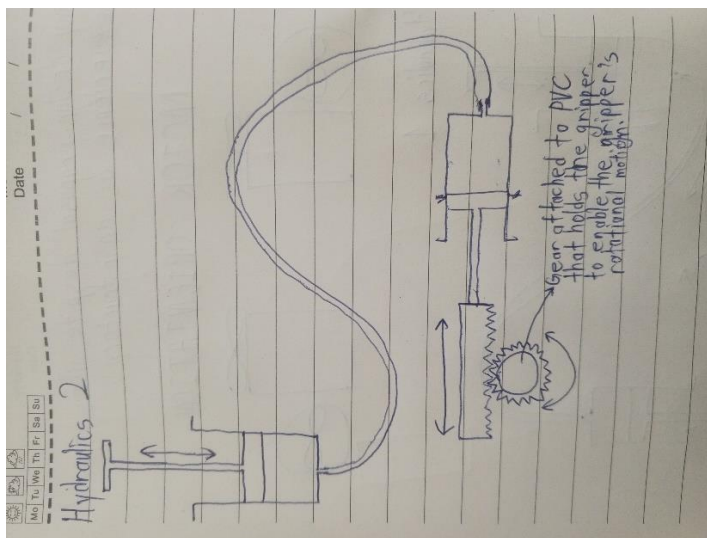 Date / /
Mo Tu We Th Fr Sa Su
Hydraulics 2
Gear attached to PVC
that holds the gripper
to enable the gripper's
rotational motion.